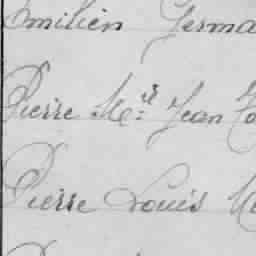 Emilien Germa
Pierre M.el Jean
Pierre Louis